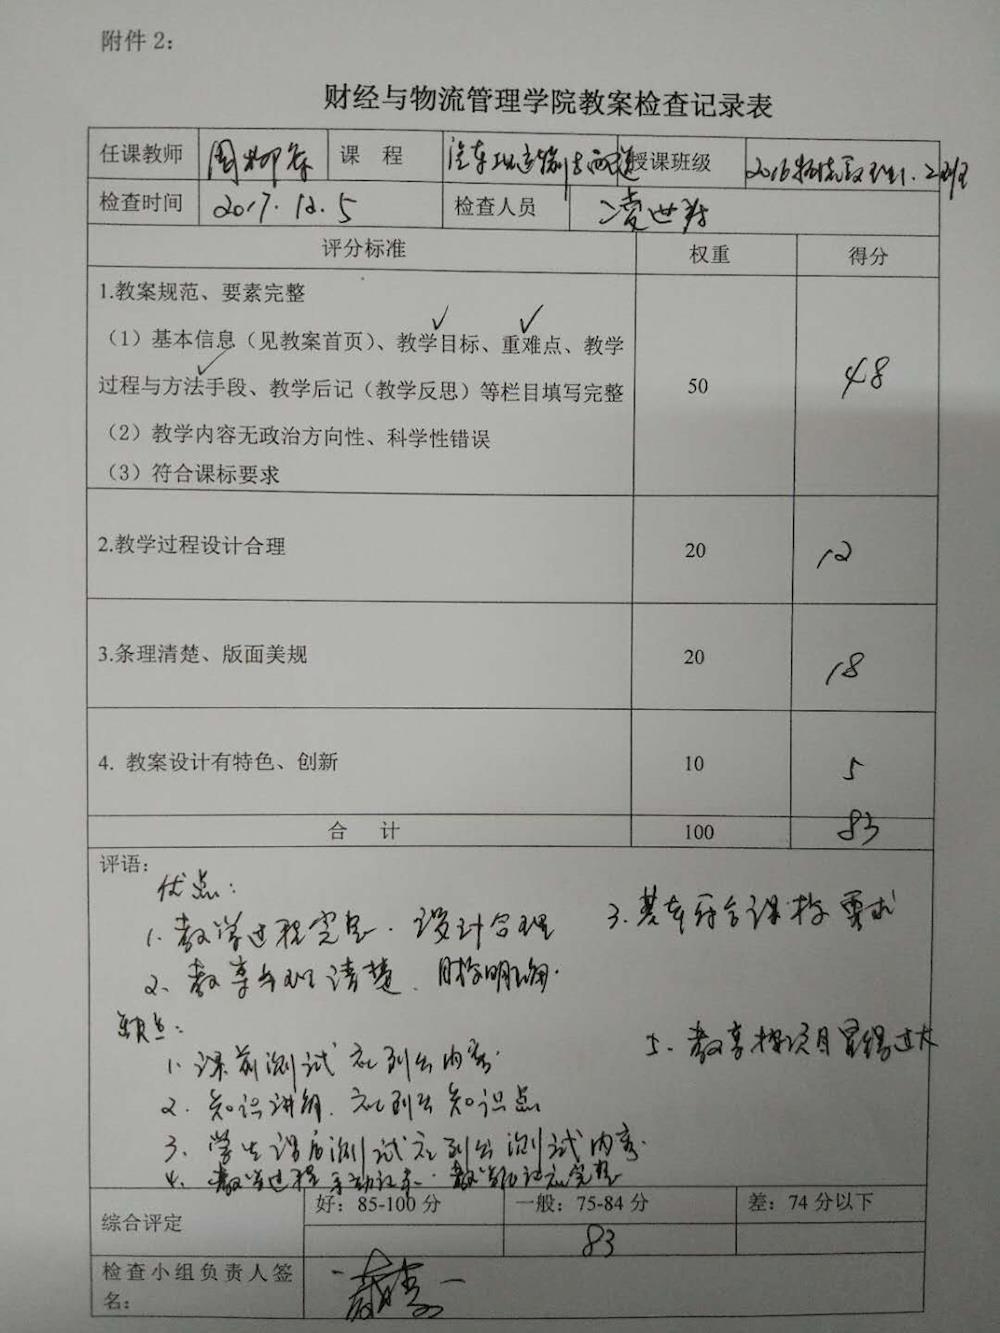 附件 2：
财经与物流管理学院教案检查记录表
任课教师 周 课 程 汽车 授课班级 2016物流管理1.2班
检查时间 2017.12.5 检查人员 凌世
评分标准 权重 得分
1.教案规范、要素完整
（1）基本信息（见教案首页）、教学目标、重难点、教学
过程与方法手段、教学后记（教学反思）等栏目填写完整 50 48
（2）教学内容无政治方向性、科学性错误
（3）符合课标要求
2.教学过程设计合理 20 12
3.条理清楚、版面美规 20 18
4. 教案设计有特色、创新 10 5
合 计 100 83
评语：
优点：
1. 教学过程完整. 设计合理 3. 基本符合课标要求
2、 清楚. 目标明确.
缺点：
1. 课前测试 列出内容. 5.
2. 知识讲解. 列出知识点
3. 学生课后测试 列出测试内容.
4. 教学过程
综合评定 好：85-100 分 一般：75-84 分 差：74 分以下
83
检查小组负责人签
名：